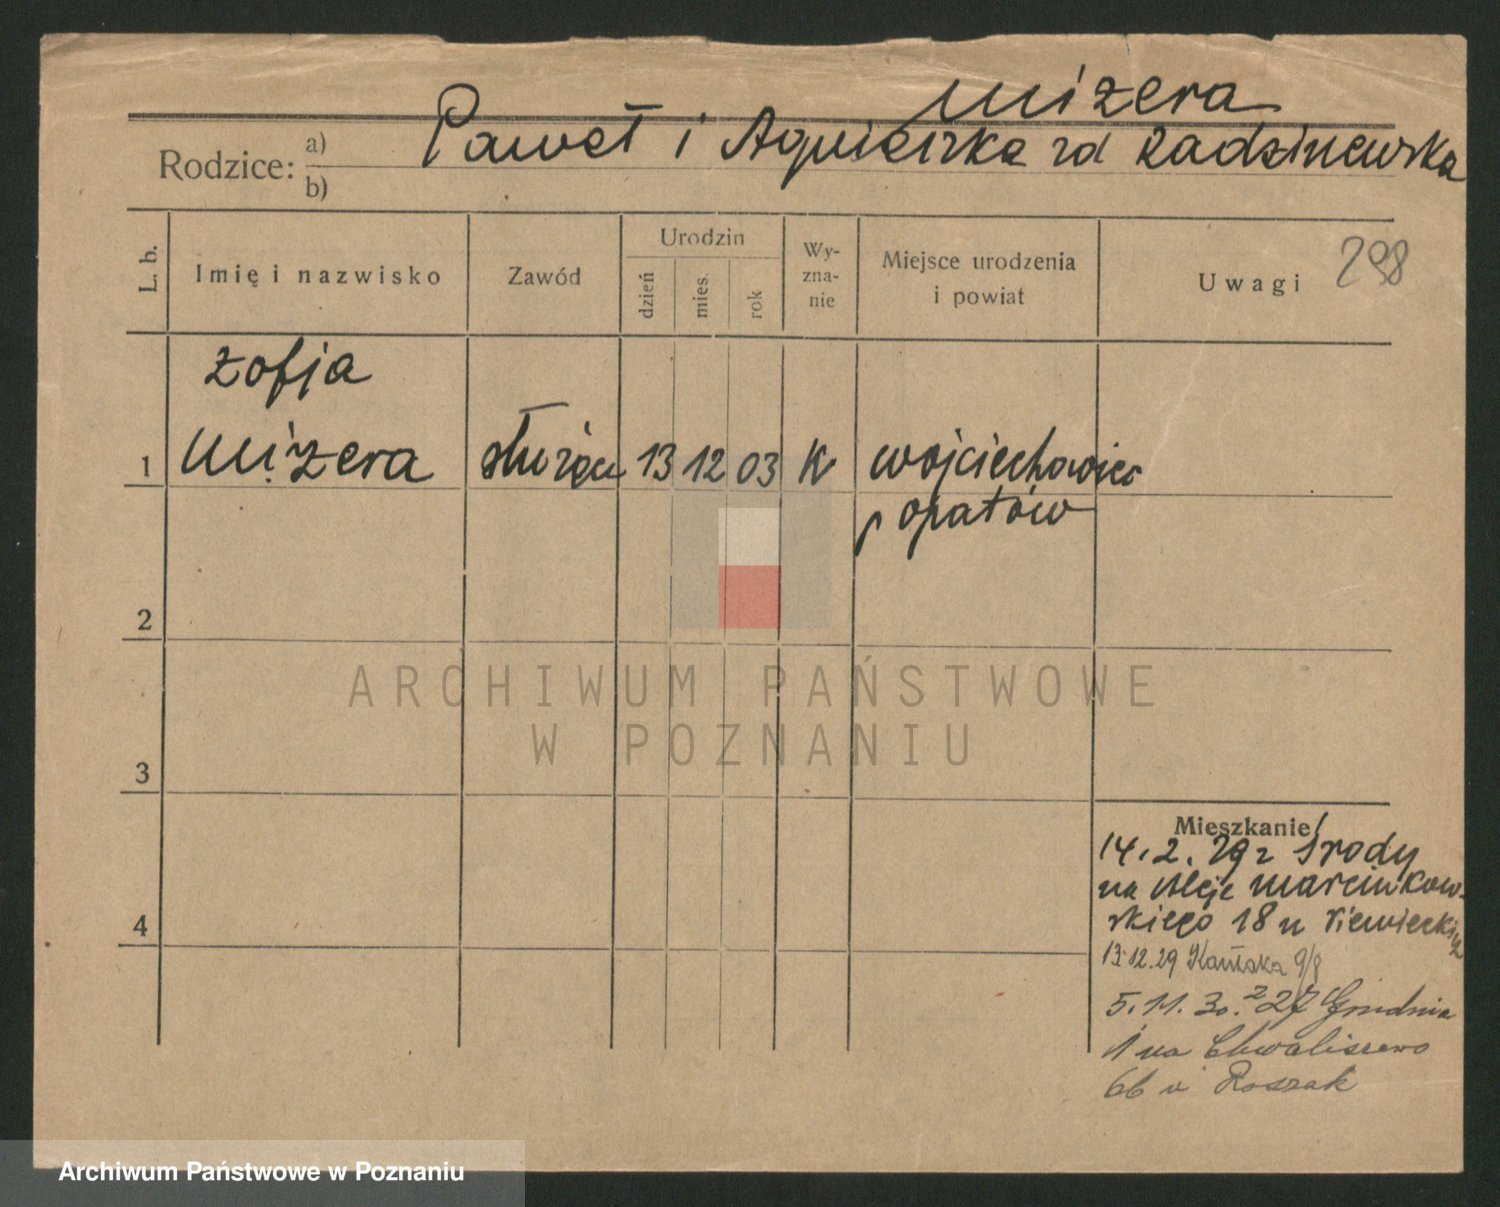 Mizera
Rodzice: a) Paweł i Agnieszka zd Radziszewska
b)
L. b.
Imię i nazwisko
Zawód
Urodzin
dzień
mies.
rok
Wy-
zna-
nie
Miejsce urodzenia
i powiat
Uwagi 298
Zofja
1 Mizera służąca 13 12 03 K Wojciechowiec
p opatów
2
3
4
ARCHIWUM PAŃSTWOWE
W POZNANIU
Mieszkanie
14.2.29 z Środy
na Aleje Marcinkow-
skiego 18 u
13.12.29 9/8
5.11.30. z 27 Grudnia
1 na Chwaliszewo
66 u Roszak
Archiwum Państwowe w Poznaniu